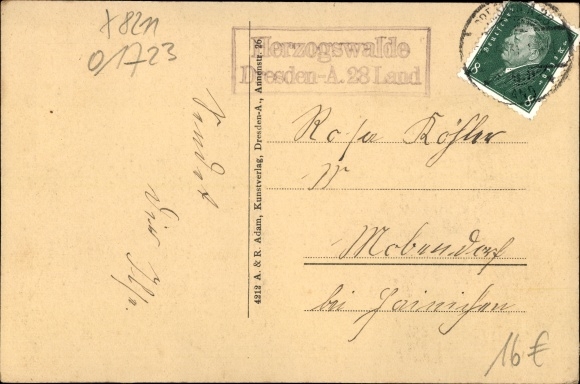 X 8211
01723
Herzogswalde
Dresden-A. 28 Land
Deutsches Reich
8 8
4212 A. & R. Adam, Kunstverlag, Dresden-A., Annenstr. 26
Rosa Köhler
Mobendorf
bei Hainichen
16 €